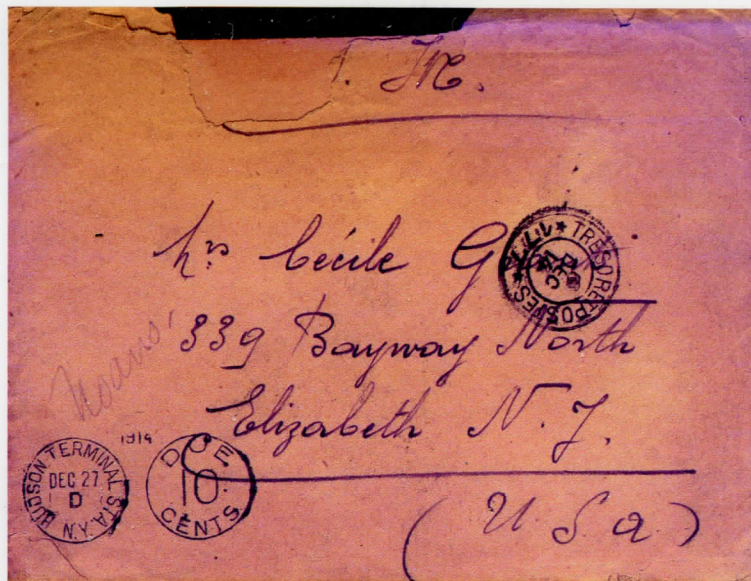 F. M.
Mrs Cécile G
TRESOR ET POSTES
339 Bayway North
Elizabeth N. J.
(U S a)
HUDSON TERMINAL STA.
DEC 27
D
N.Y.
1914
DUE
10
CENTS